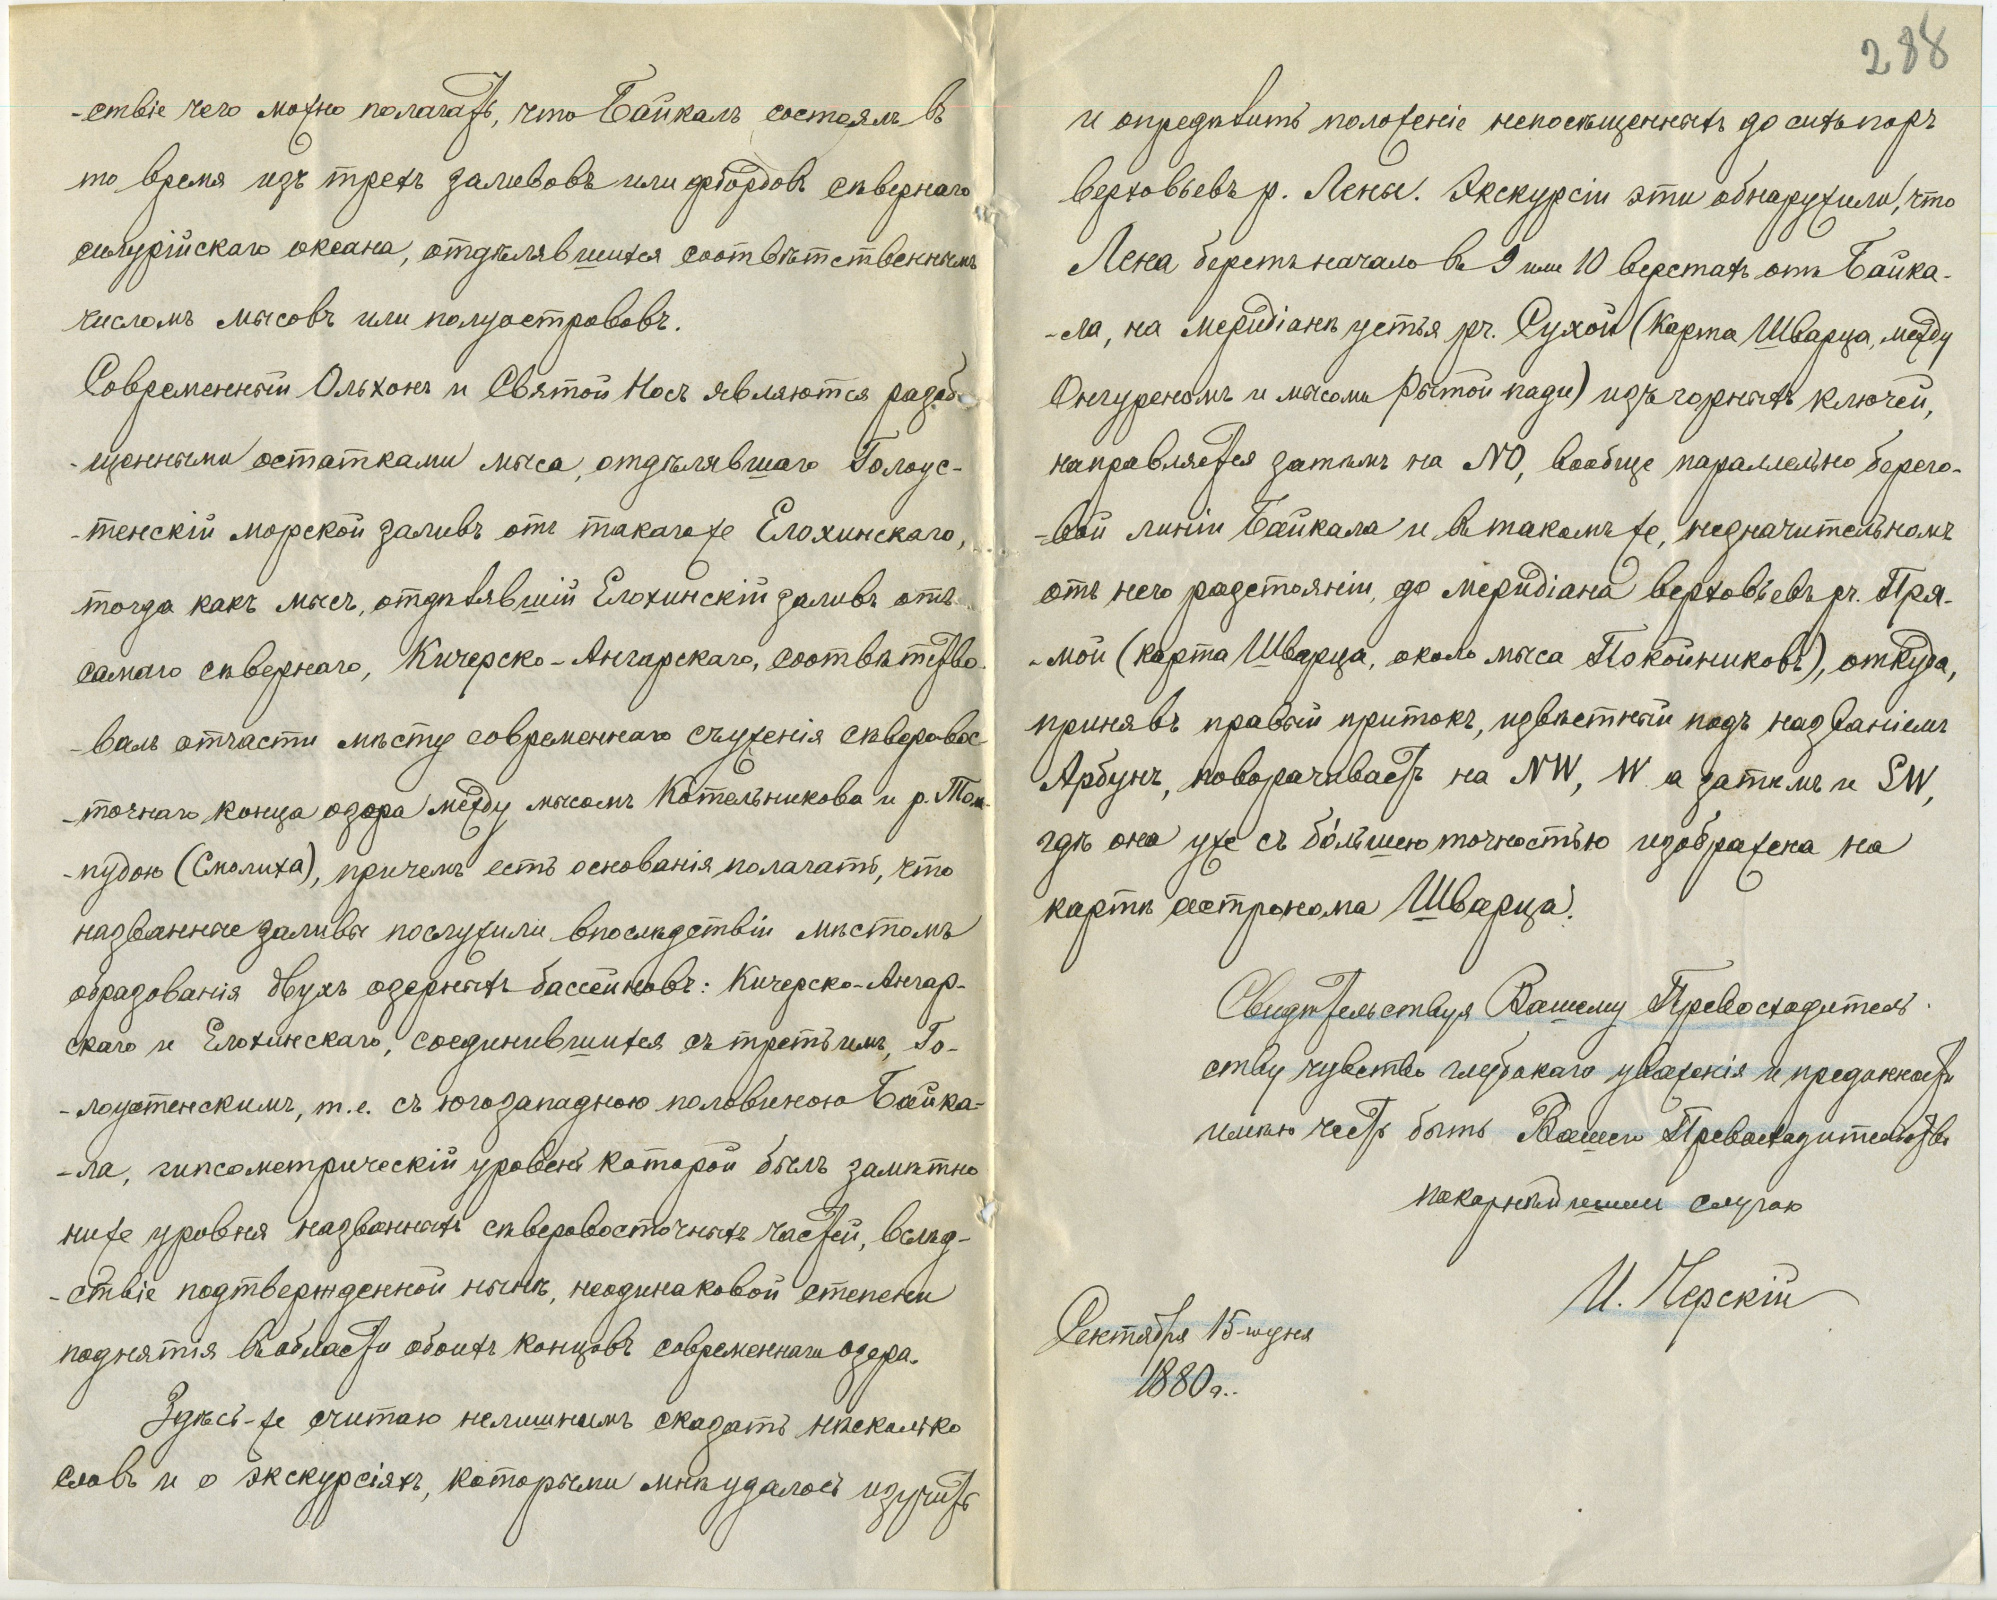 -ствіе чего можно полагать, что Байкалъ состоялъ въ
то время изъ трехъ заливовъ или фіордовъ сѣвернаго
силурійскаго океана, отдѣлявшихся соотвѣтственнымъ
числомъ мысовъ или полуострововъ.
Современный Ольхонъ и Святой Носъ являются разоб-
-щенными остатками мыса, отдѣлявшаго Голоус-
-тенскій морской заливъ отъ такагоже Елохинскаго,
тогда какъ мысъ, отдѣлявшій Елохинскій заливъ отъ
самаго сѣвернаго, Кичерско-Ангарскаго, соотвѣтство-
-валъ отчасти мѣсту современнаго съуженія сѣверовос-
-точнаго конца озера между мысомъ Котельникова и р. Том-
-пудою (Смолиха), причемъ есть основанія полагать, что
названные заливы послужили впослѣдствіи мѣстомъ
образованія двухъ озерныхъ бассейновъ: Кичерско-Ангар-
скаго и Елохинскаго, соединившихся съ третьимъ, Го-
-лоустенскимъ, т.е. съ югозападною половиною Байка-
-ла, гипсометрическій уровень которой былъ замѣтно
ниже уровня названныхъ сѣверовосточныхъ частей, вслѣд-
-ствіе подтвержденной нынѣ, неодинаковой степени
поднятія въ области обоихъ концовъ современнаго озера.
Здѣсь-же считаю нелишнимъ сказать нѣсколько
словъ и о экскурсіяхъ, которыми мнѣ удалось изучить
288
и опредѣлить положеніе непосѣщенныхъ до сихъ поръ
верховьевъ р. Лены. Экскурсіи эти обнаружили, что
Лена беретъ начало въ 9 или 10 верстахъ отъ Байка-
-ла, на меридіанѣ устья рч. Сухой (карта Шварца, между
Онгуреномъ и мысомъ Рытой пади) изъ горныхъ ключей,
направляется затѣмъ на NO, вообще параллельно берего-
-вой линіи Байкала и въ такомъ же, незначительномъ
отъ него разстояніи, до меридіана верховьевъ рч. Пря-
-мой (карта Шварца, около мыса Покойниковъ), откуда,
принявъ правый притокъ, извѣстный подъ названіемъ
Арбунъ, поворачиваетъ на NW, W а затѣмъ и SW,
гдѣ она уже съ бо́льшею точностью изображена на
картѣ астронома Шварца.
Свидѣтельствуя Вашему Превосходитель-
ству чувство глубокаго уваженія и преданности
имѣю честь быть Вашего Превосходительства
покорнѣйшимъ слугою
И. Черскій
Сентября 15-го дня
1880 г.